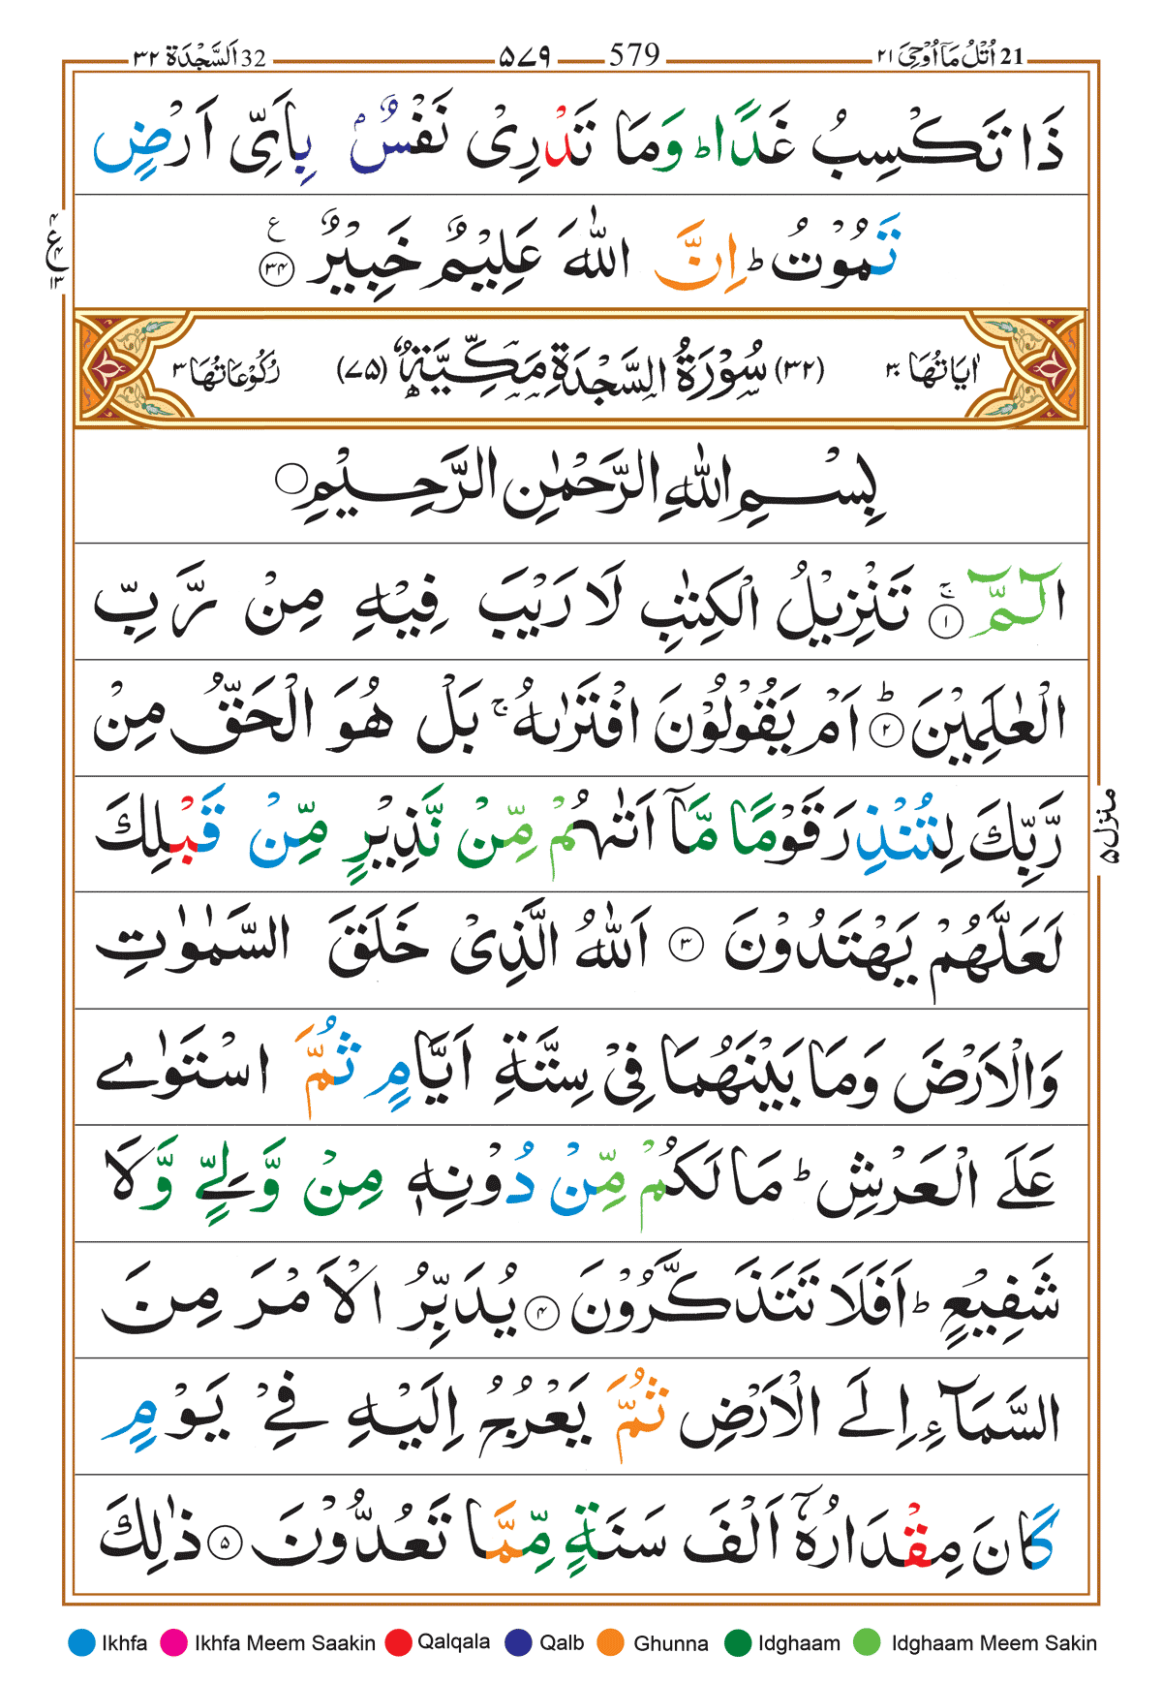 32 اَلسَّجْدَة ٣٢ ٥٧٩ 579 ٢١ اُتْلُ مَآ اُوْحِيَ 21
ذَا تَكْسِبُ غَدًا ؕ وَمَا تَدْرِىْ نَفْسٌۢ بِاَىِّ اَرْضٍ
تَمُوْتُ ؕ اِنَّ اللّٰهَ عَلِيْمٌ خَبِيْرٌ ۟ع ٣٤
ع ٤ ٤ ١٣
اٰيَاتُهَا ٣٠ (٣٢) سُوْرَةُ السَّجْدَةِ مَكِّيَّةٌ (٧٥) رُكُوْعَاتُهَا ٣
بِسْمِ اللّٰهِ الرَّحْمٰنِ الرَّحِيْمِ
الٓمّٓ ۚ ١ تَنْزِيْلُ الْكِتٰبِ لَا رَيْبَ فِيْهِ مِنْ رَّبِّ
الْعٰلَمِيْنَ ؕ ٢ اَمْ يَقُوْلُوْنَ افْتَرٰىهُ ۚ بَلْ هُوَ الْحَقُّ مِنْ
رَّبِّكَ لِتُنْذِرَ قَوْمًا مَّآ اَتٰىهُمْ مِّنْ نَّذِيْرٍ مِّنْ قَبْلِكَ
منزل ٥
لَعَلَّهُمْ يَهْتَدُوْنَ ٣ اَللّٰهُ الَّذِىْ خَلَقَ السَّمٰوٰتِ
وَالْاَرْضَ وَمَا بَيْنَهُمَا فِىْ سِتَّةِ اَيَّامٍ ثُمَّ اسْتَوٰى
عَلَى الْعَرْشِ ؕ مَا لَكُمْ مِّنْ دُوْنِهٖ مِنْ وَّلِىٍّ وَّلَا
شَفِيْعٍ ؕ اَفَلَا تَتَذَكَّرُوْنَ ٤ يُدَبِّرُ الْاَمْرَ مِنَ
السَّمَآءِ اِلَى الْاَرْضِ ثُمَّ يَعْرُجُ اِلَيْهِ فِىْ يَوْمٍ
كَانَ مِقْدَارُهٗۤ اَلْفَ سَنَةٍ مِّمَّا تَعُدُّوْنَ ٥ ذٰلِكَ
Ikhfa Ikhfa Meem Saakin Qalqala Qalb Ghunna Idghaam Idghaam Meem Sakin